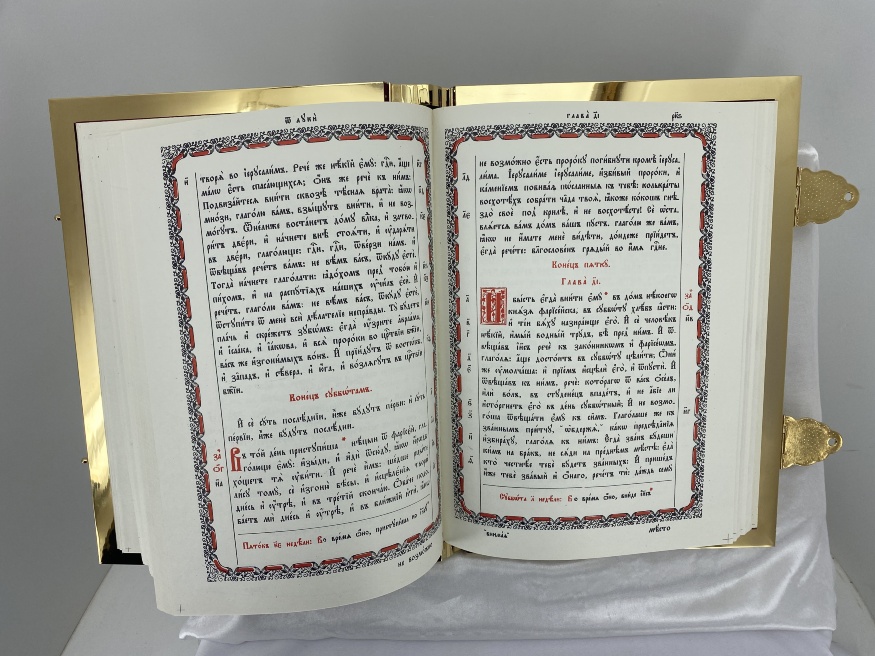 ѿ лꙋкѝ
творѧ̀ во і҆ерⷭ҇ли́мъ. Рече́ же нѣ́кїй є҆мꙋ̀: гдⷭ҇и, а҆́ще
ма́лѡ є҆́сть спаса́ющихсѧ; Ѻ҆́нъ же речѐ къ ни̑мъ:
Подвиза́йтесѧ вни́ти сквозѣ̀ тѣ̑снаѧ врата̀: ꙗ҆́кѡ
мно́зи, глаго́лю ва́мъ, взы́щꙋтъ вни́ти, и҆ не воз-
мо́гꙋтъ. Ѿне́лиже воста́нетъ до́мꙋ влⷣка, и҆ затво-
ри́тъ две́ри, и҆ на́чнете внѣ̀ стоѧ́ти, и҆ ᲂу҆дарѧ́ти
въ две́ри, глаго́люще: гдⷭ҇и, гдⷭ҇и, ѿве́рзи на́мъ. и҆
ѿвѣща́въ рече́тъ ва́мъ: не вѣ́мъ ва́съ, ѿкꙋ́дꙋ є҆стѐ.
Тогда̀ на́чнете глаго́лати: ꙗ҆до́хомъ пред̾ тобо́ю и҆
пи́хомъ, и҆ на распꙋ́тїихъ на́шихъ ᲂу҆чи́лъ є҆сѝ. И҆
рече́тъ, глаго́лю ва́мъ: не вѣ́мъ ва́съ, ѿкꙋ́дꙋ є҆стѐ:
ѿстꙋпи́те ѿ менє̀ всѝ дѣ́лателїе непра́вды. Тꙋ̀ бꙋ́детъ
пла́чь и҆ скре́жетъ зꙋбѡ́мъ: є҆гда̀ ᲂу҆́зрите а҆враа́ма
и҆ і҆саа́ка, и҆ і҆а́кѡва, и҆ всѧ̑ прⷪ҇ро́ки во црⷭ҇твїи бж҃їи,
ва́съ же и҆згони́мыхъ во́нъ. И҆ прїи́дꙋтъ ѿ востѡ́къ
и҆ за́падъ, и҆ сѣ́вера, и҆ ю҆́га, и҆ возлѧ́гꙋтъ въ црⷭ҇твїи
бж҃їи.
Коне́цъ сꙋббѡ́тамъ.
И҆ сѐ сꙋ́ть послѣ́днїи, и҆̀же бꙋ́дꙋтъ пе́рви: и҆ сꙋ́ть
пе́рвїи, и҆̀же бꙋ́дꙋтъ послѣ́дни.
за҃
ѻ҃г
Въ то́й де́нь пристꙋпи́ша * нѣ́цыи ѿ фарїсє́й, гла-
го́люще є҆мꙋ̀: и҆зы́ди, и҆ и҆дѝ ѿсю́дꙋ, ꙗ҆́кѡ и҆́рѡдъ
хо́щетъ тѧ̀ ᲂу҆би́ти. И҆ речѐ и҆̀мъ: ше́дше рцы́те
ли́сꙋ томꙋ̀, сѐ и҆згоню̀ бѣ́сы, и҆ и҆сцѣлє́нїѧ творю̀
дне́сь и҆ ᲂу҆́трѣ, и҆ въ тре́тїй сконча́ю. Ѻ҆ба́че подо-
ба́етъ мѝ дне́сь и҆ ᲂу҆́трѣ, и҆ въ бли́жнїй и҆тѝ. ꙗ҆́кѡ
Пѧто́къ к҃є недѣ́ли: Во вре́мѧ ѻ҆́но, пристꙋпи́ша ко і҆и҃сꙋ *
не возмо́жно
глава̀ д҃і
рк҃ѕ
не возмо́жно є҆́сть прⷪ҇ро́кꙋ поги́бнꙋти кромѣ̀ і҆ерꙋса-
ли́ма. І҆ерⷭ҇ли́ме і҆ерⷭ҇ли́ме, и҆зби́вый прⷪ҇ро́ки, и҆
ка́менїемъ побива́ѧ по́сланныѧ къ тебѣ̀: колькра́ты
восхотѣ́хъ собра́ти ча̑да твоѧ̑, ꙗ҆́коже ко́кошъ гнѣ-
здо̀ своѐ под̾ крилѣ̀, и҆ не восхотѣ́сте! Сѐ ѡ҆ста-
влѧ́етсѧ ва́мъ до́мъ ва́шъ пꙋ́стъ. глаго́лю же ва́мъ,
ꙗ҆́кѡ не и҆́мате менє̀ ви́дѣти, до́ндеже прїи́детъ,
є҆гда̀ рече́те: блгⷭ҇ове́нъ грѧды́й во и҆́мѧ гдⷭ҇не.
Коне́цъ пѧткꙋ̀.
Глава̀ д҃і.
И҆ бы́сть є҆гда̀ вни́ти є҆мꙋ̀ * въ до́мъ нѣ́коегѡ
кнѧ́зѧ фарїсе́йска, въ сꙋббѡ́тꙋ хлѣ́бъ ꙗ҆́сти:
и҆ ті́и бѧ́хꙋ назира́юще є҆го̀. И҆ сѐ человѣ́къ
нѣ́кїй, и҆мы́й водны́й трꙋ́дъ, бѣ̀ пред̾ ни́мъ. И҆ ѿ-
вѣща́въ і҆и҃съ речѐ къ зако́нникѡмъ и҆ фарїсє́ѡмъ,
глаго́лѧ: а҆́ще досто́итъ въ сꙋббѡ́тꙋ цѣли́ти; Ѻ҆ни́
же ᲂу҆молча́ша: и҆ прїе́мъ и҆сцѣлѝ є҆го̀, и҆ ѿпꙋстѝ. И҆
ѿвѣща́въ къ ни̑мъ, речѐ: кото́рагѡ ѿ ва́съ ѻ҆се́лъ,
и҆лѝ во́лъ, въ стꙋдене́цъ впаде́тъ, и҆ не а҆́бїе лѝ
и҆сто́ргнетъ є҆го̀ въ де́нь сꙋббѡ́тный; И҆ не возмо-
го́ша ѿвѣща́ти є҆мꙋ̀ къ си̑мъ. Глаго́лаше же къ
зва̑ннымъ при́тчꙋ, ѡ҆держѧ̀, ка́кѡ предсѣда̑нїѧ
и҆збира́хꙋ, глаго́лѧ къ ни̑мъ: Є҆гда̀ зва́нъ бꙋ́деши
ки́мъ на бра́къ, не сѧ́ди на пре́днемъ мѣ́стѣ: є҆да̀
кто̀ чⷭ҇тнѣ́е тебє̀ бꙋ́детъ зва́нныхъ: И҆ прише́дъ
и҆́же тебѐ зва́вый и҆ ѻ҆́наго, рече́тъ тѝ: да́ждь семꙋ̀
за҃
ѻ҃д
Сꙋббѡ́та і҃ недѣ́ли: Во вре́мѧ ѻ҆́но, вни́де і҆и҃съ *
мѣ́сто